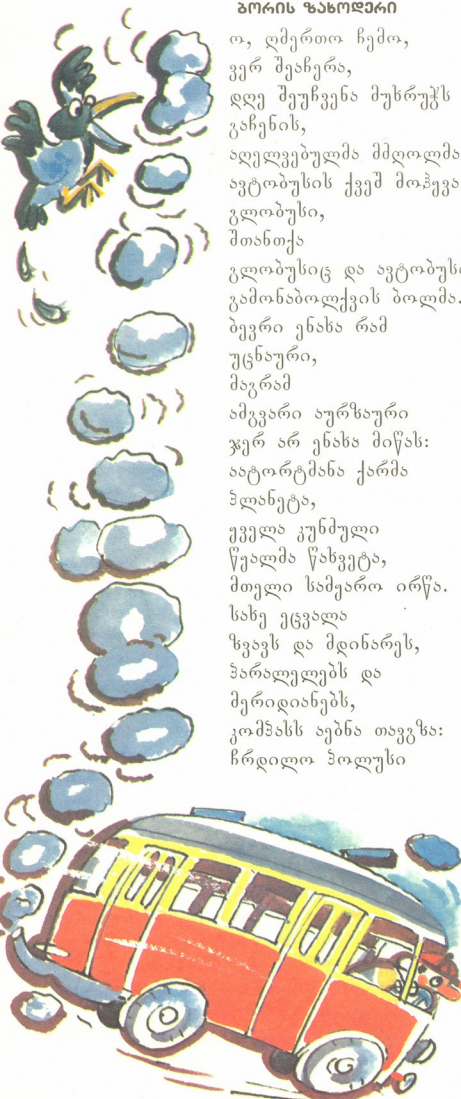 ბორის ზახოდერი
ო, ღმერთო ჩემო,
ვერ შეაჩერა,
დღე შეუჩვენა მუხრუჭს
გაჩენის,
აღელვებულმა მძღოლმა
ავტობუსის ქვეშ მოჰყვა
გლობუსი,
შთანთქა
გლობუსიც და ავტობუსი
გამონაბოლქვის ბოლმა.
ბევრი ენახა რამ
უცნაური,
მაგრამ
ამგვარი აურზაური
ჯერ არ ენახა მიწას:
აატორტმანა ქარმა
პლანეტა,
ყველა კუნძული
წყალმა წახვეტა,
მთელი სამყარო ირწა.
სახე ეცვალა
ზვავს და მდინარეს,
პარალელებს და
მერიდიანებს,
კომპასს აებნა თავგზა:
ჩრდილო პოლუსი